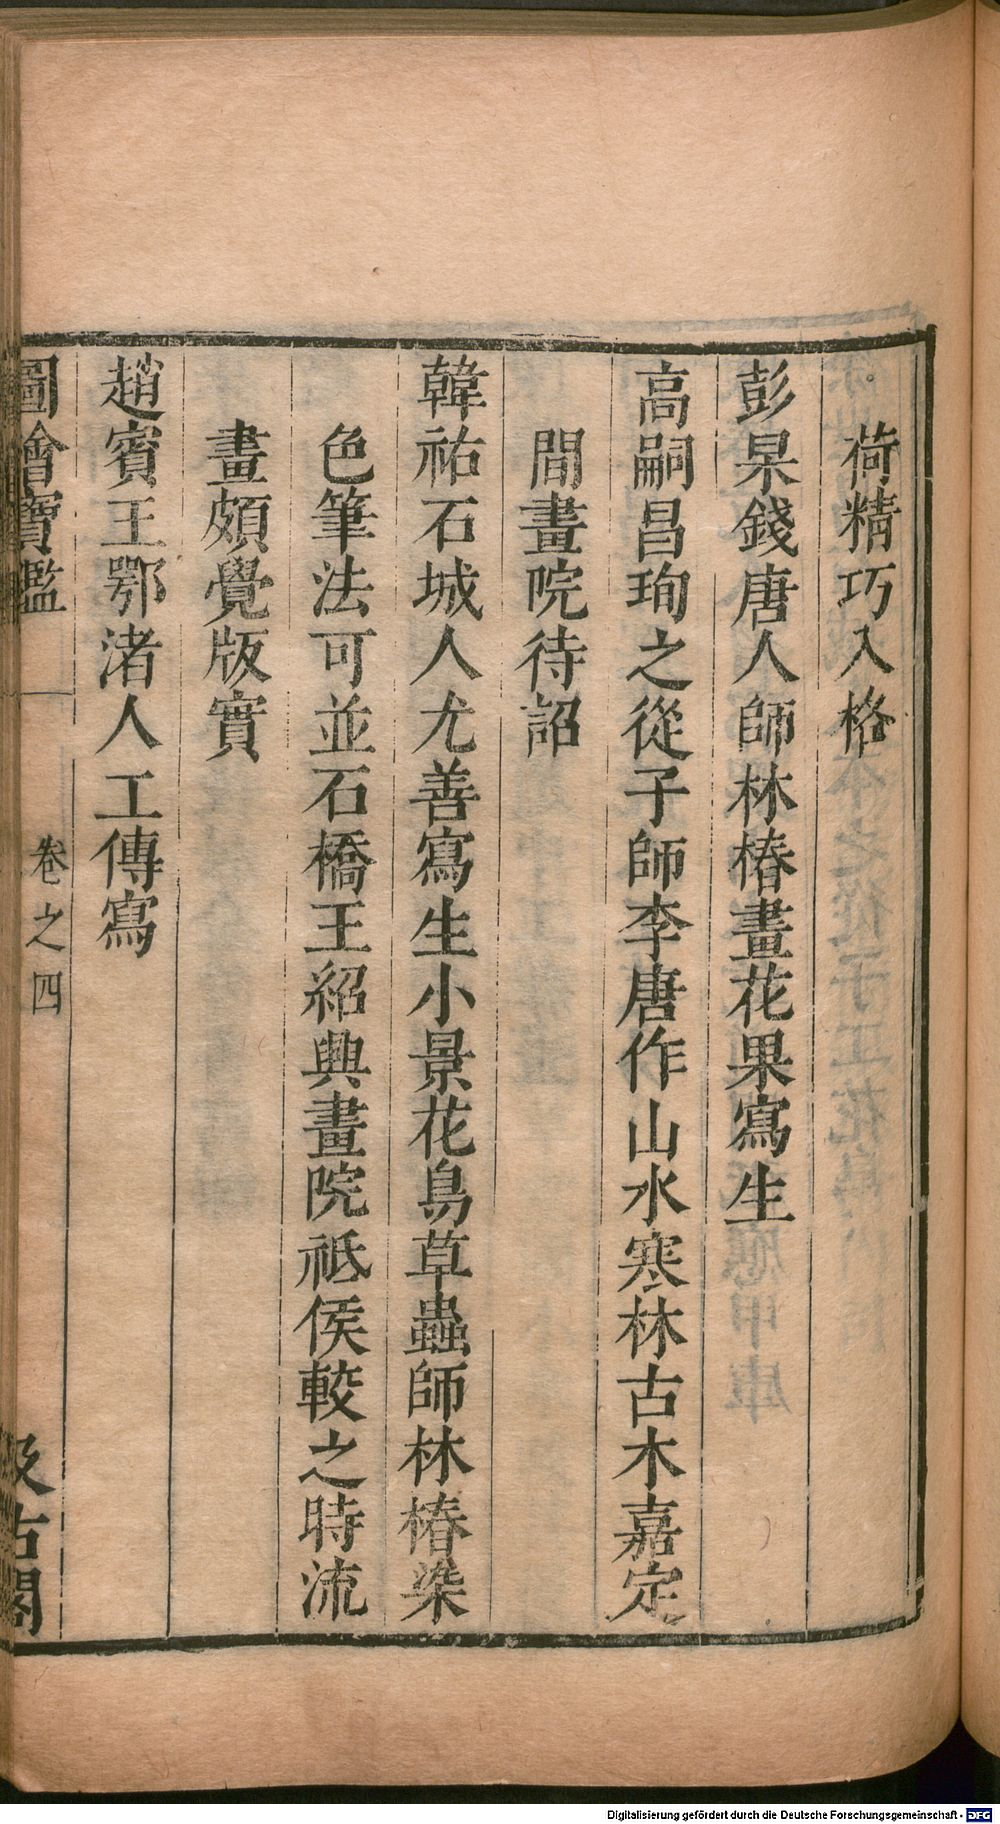 荷精巧入格
彭杲錢唐人師林椿畫花果寫生
高嗣昌珣之從子師李唐作山水寒林古木嘉定
間畫院待詔
韓祐石城人尤善寫生小景花鳥草蟲師林椿染
色筆法可並石橋王紹興畫院祗侯較之時流
畫頗覺版實
趙賓王鄂渚人工傳寫
圖繪寶鑑 卷之四 汲古閣
Digitalisierung gefördert durch die Deutsche Forschungsgemeinschaft - DFG